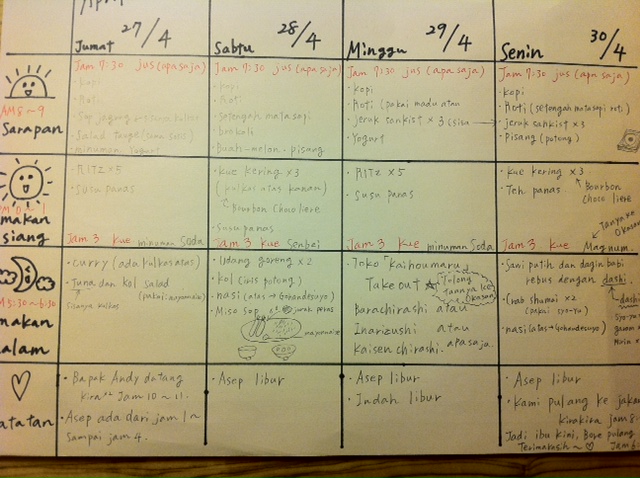 27/4
Jumat
28/4
Sabtu
29/4
Minggu
30/4
Senin
AM 8~9
Sarapan
Jam 7:30 jus (apa saja)
· kopi
· Roti
· Salad
· minuman yogurt
Jam 7:30 jus (apa saja)
· kopi
· Roti
· setengah matasapi
· brokoli
· Buah-melon. pisang
Jam 7:30 jus (apa saja)
· kopi
· Roti (pakai madu atau
· jeruk sankist ×3 (sisa
· Yogurt
Jam 7:30 jus (apa saja)
· kopi
· Roti (setengah matasapi roti)
· jeruk sankist ×3
· Pisang (potong)
makan
siang
· RITZ ×5
· susu panas
Jam 3 kue minuman Soda
· kue kering ×3
(kulkas atas kanan)
Bourbon Choco liere
· susu panas
Jam 3 kue Senbai
· RITZ ×5
· susu panas
Jam 3 kue minuman Soda
· kue kering ×3
· Teh panas
Bourbon
Choco liere
Tanya ke
Okasan
Jam 3 kue Magnum
5:30~6:30
makan
alam
· curry (ada kulkas atas)
· Tuna dan kol salad
(pakai mayonnaise)
· Udang goreng ×2
· kol (iris potong)
· nasi (atas → Gohandesuyo)
· Miso sop
jeruk peras
mayonnaise
· Toko "kaihoumaru"
Take out ☆
Tolong
Tanya ke
Okasan
Barachirashi atau
Inarizushi atau
kaisen chirashi. apa saja.
· Sawi putih dan daging babi
rebus dengan dashi.
· Crab shumai ×2
(pakai syo-yu)
· nasi (atas → Gohandesuyo)
dashi
syo-yu
garam
Mirin
♡
atatan
· Bapak Andy datang
kira²² Jam 10~11.
· Asep ada dari jam 1~
sampai jam 4.
· Asep libur
· Asep libur
· Indah libur
· Asep libur
· Kami pulang ke jaka
kirakira jam 8
Jadi ibu kini, Bose pulang
Terimakasih~♡ Jam 6